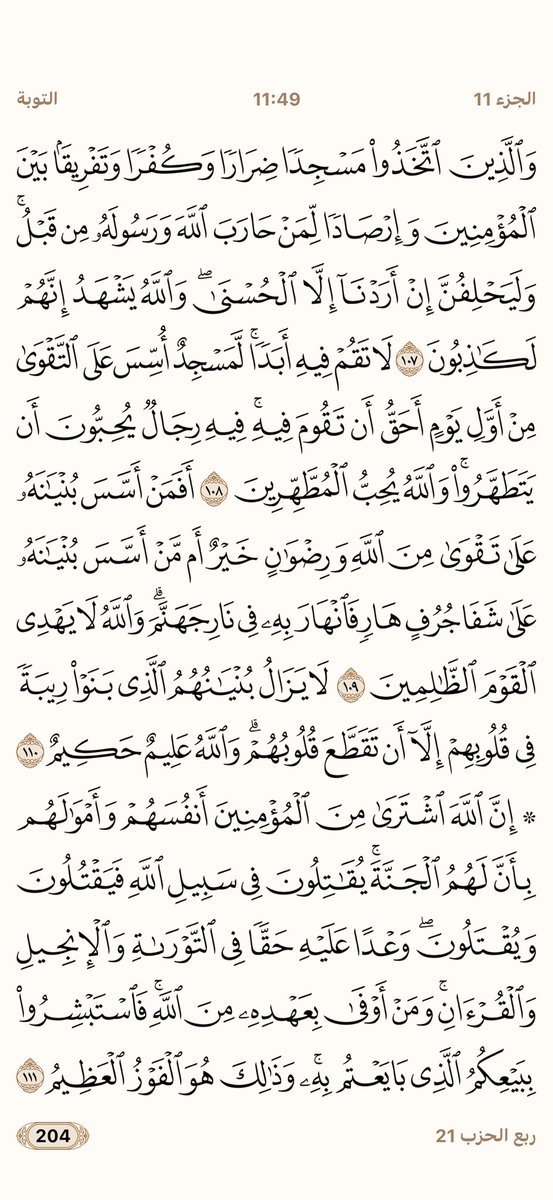 الجزء 11 11:49 التوبة
وَٱلَّذِينَ ٱتَّخَذُواْ مَسۡجِدٗا ضِرَارٗا وَكُفۡرٗا وَتَفۡرِيقَۢا بَيۡنَ
ٱلۡمُؤۡمِنِينَ وَإِرۡصَادٗا لِّمَنۡ حَارَبَ ٱللَّهَ وَرَسُولَهُۥ مِن قَبۡلُۚ
وَلَيَحۡلِفُنَّ إِنۡ أَرَدۡنَآ إِلَّا ٱلۡحُسۡنَىٰۖ وَٱللَّهُ يَشۡهَدُ إِنَّهُمۡ
لَكَٰذِبُونَ ١٠٧ لَا تَقُمۡ فِيهِ أَبَدٗاۚ لَّمَسۡجِدٌ أُسِّسَ عَلَى ٱلتَّقۡوَىٰ
مِنۡ أَوَّلِ يَوۡمٍ أَحَقُّ أَن تَقُومَ فِيهِۚ فِيهِ رِجَالٞ يُحِبُّونَ أَن
يَتَطَهَّرُواْۚ وَٱللَّهُ يُحِبُّ ٱلۡمُطَّهِّرِينَ ١٠٨ أَفَمَنۡ أَسَّسَ بُنۡيَٰنَهُۥ
عَلَىٰ تَقۡوَىٰ مِنَ ٱللَّهِ وَرِضۡوَٰنٍ خَيۡرٌ أَم مَّنۡ أَسَّسَ بُنۡيَٰنَهُۥ
عَلَىٰ شَفَا جُرُفٍ هَارٖ فَٱنۡهَارَ بِهِۦ فِي نَارِ جَهَنَّمَۗ وَٱللَّهُ لَا يَهۡدِي
ٱلۡقَوۡمَ ٱلظَّٰلِمِينَ ١٠٩ لَا يَزَالُ بُنۡيَٰنُهُمُ ٱلَّذِي بَنَوۡاْ رِيبَةٗ
فِي قُلُوبِهِمۡ إِلَّآ أَن تَقَطَّعَ قُلُوبُهُمۡۗ وَٱللَّهُ عَلِيمٌ حَكِيمٌ ١١٠
۞ إِنَّ ٱللَّهَ ٱشۡتَرَىٰ مِنَ ٱلۡمُؤۡمِنِينَ أَنفُسَهُمۡ وَأَمۡوَٰلَهُم
بِأَنَّ لَهُمُ ٱلۡجَنَّةَۚ يُقَٰتِلُونَ فِي سَبِيلِ ٱللَّهِ فَيَقۡتُلُونَ
وَيُقۡتَلُونَۖ وَعۡدًا عَلَيۡهِ حَقّٗا فِي ٱلتَّوۡرَىٰةِ وَٱلۡإِنجِيلِ
وَٱلۡقُرۡءَانِۚ وَمَنۡ أَوۡفَىٰ بِعَهۡدِهِۦ مِنَ ٱللَّهِۚ فَٱسۡتَبۡشِرُواْ
بِبَيۡعِكُمُ ٱلَّذِي بَايَعۡتُم بِهِۦۚ وَذَٰلِكَ هُوَ ٱلۡفَوۡزُ ٱلۡعَظِيمُ ١١١
ربع الحزب 21 204